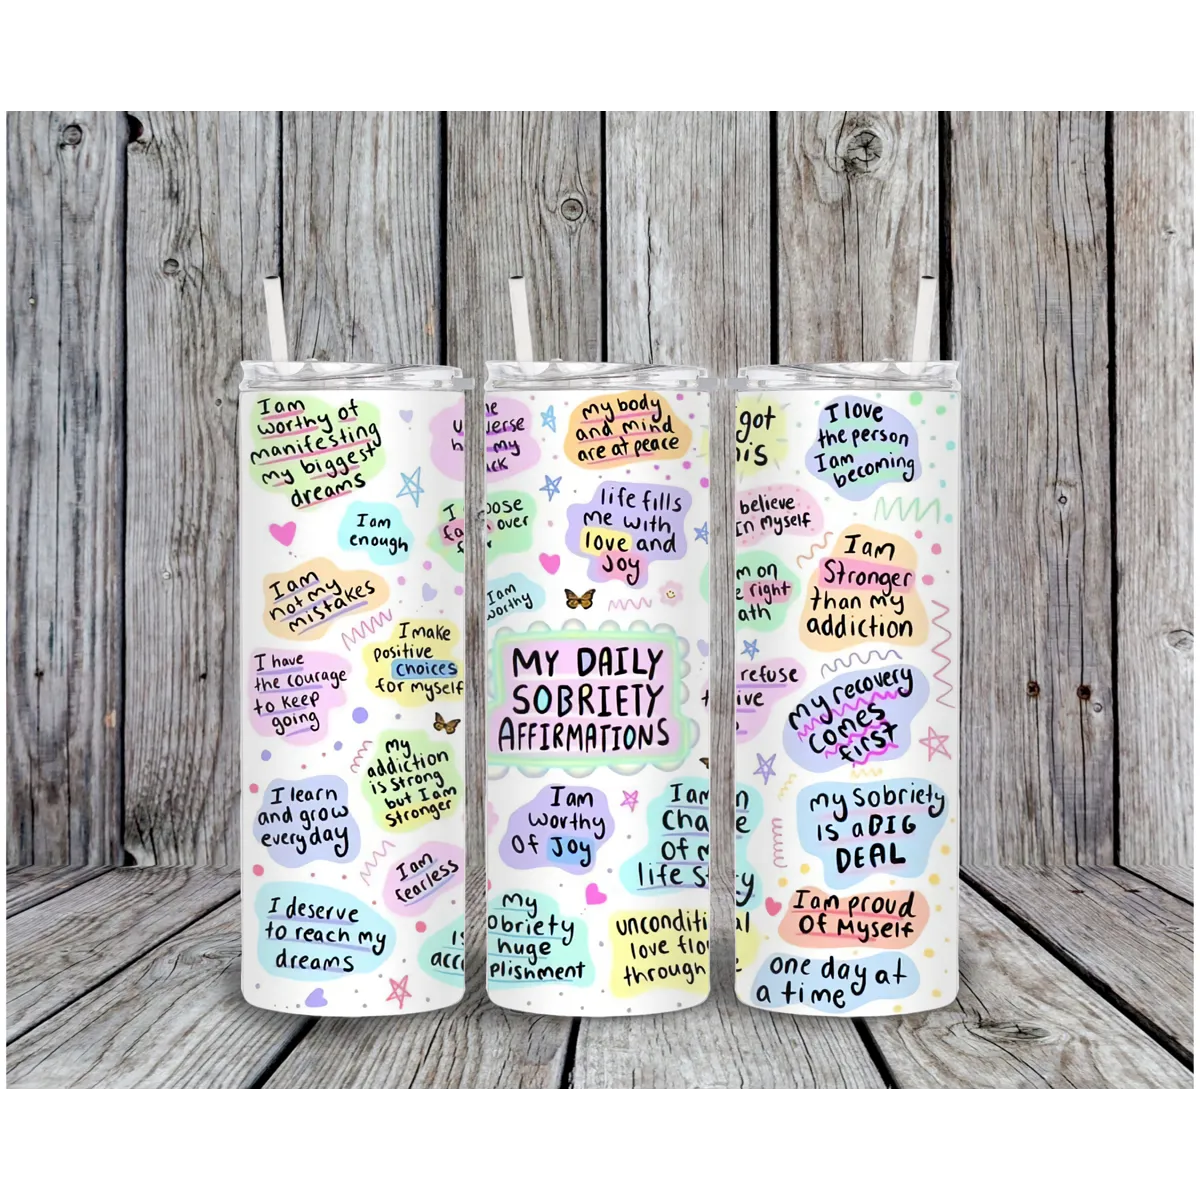 I am
worthy of
manifesting
my biggest
dreams
I am
enough
I am
not my
mistakes
I make
positive
choices
for myself
I have
the courage
to keep
going
my
addiction
is strong
but I am
stronger
I learn
and grow
everyday
I am
fearless
I deserve
to reach my
dreams
my
my body
and mind
are at peace
over
life fills
me with
love and
joy
I am
worthy
MY DAILY
SOBRIETY
AFFIRMATIONS
I am
worthy
of Joy
I am
of
life
my
huge
love
through
got
I love
the person
I am
becoming
believe
in myself
I am
Stronger
than my
addiction
on
right
my recovery
comes
first
my sobriety
is a BIG
DEAL
I am proud
of Myself
one day at
a time